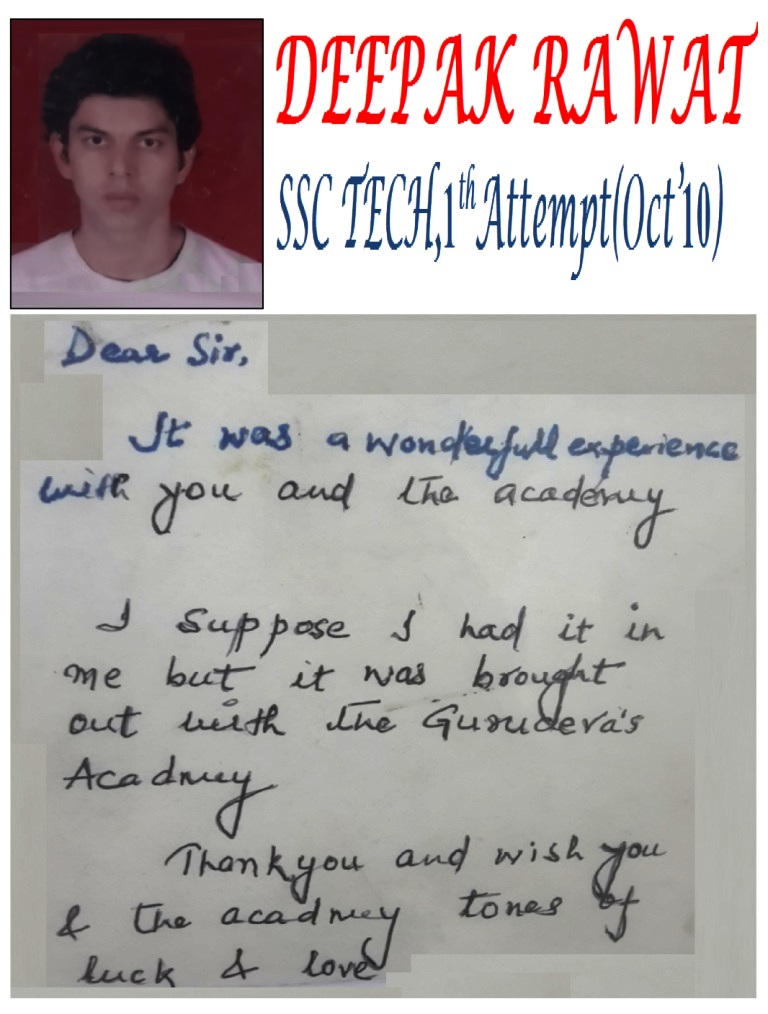 DEEPAK RAWAT
SSC TECH,1th Attempt(Oct'10)
Dear Sir,
It was a wonderfull experience
with you and the academy
I suppose I had it in
me but it was brought
out with the Gurudeva's
Acadmey
Thankyou and wish you
& the acadmey tones of
luck & love